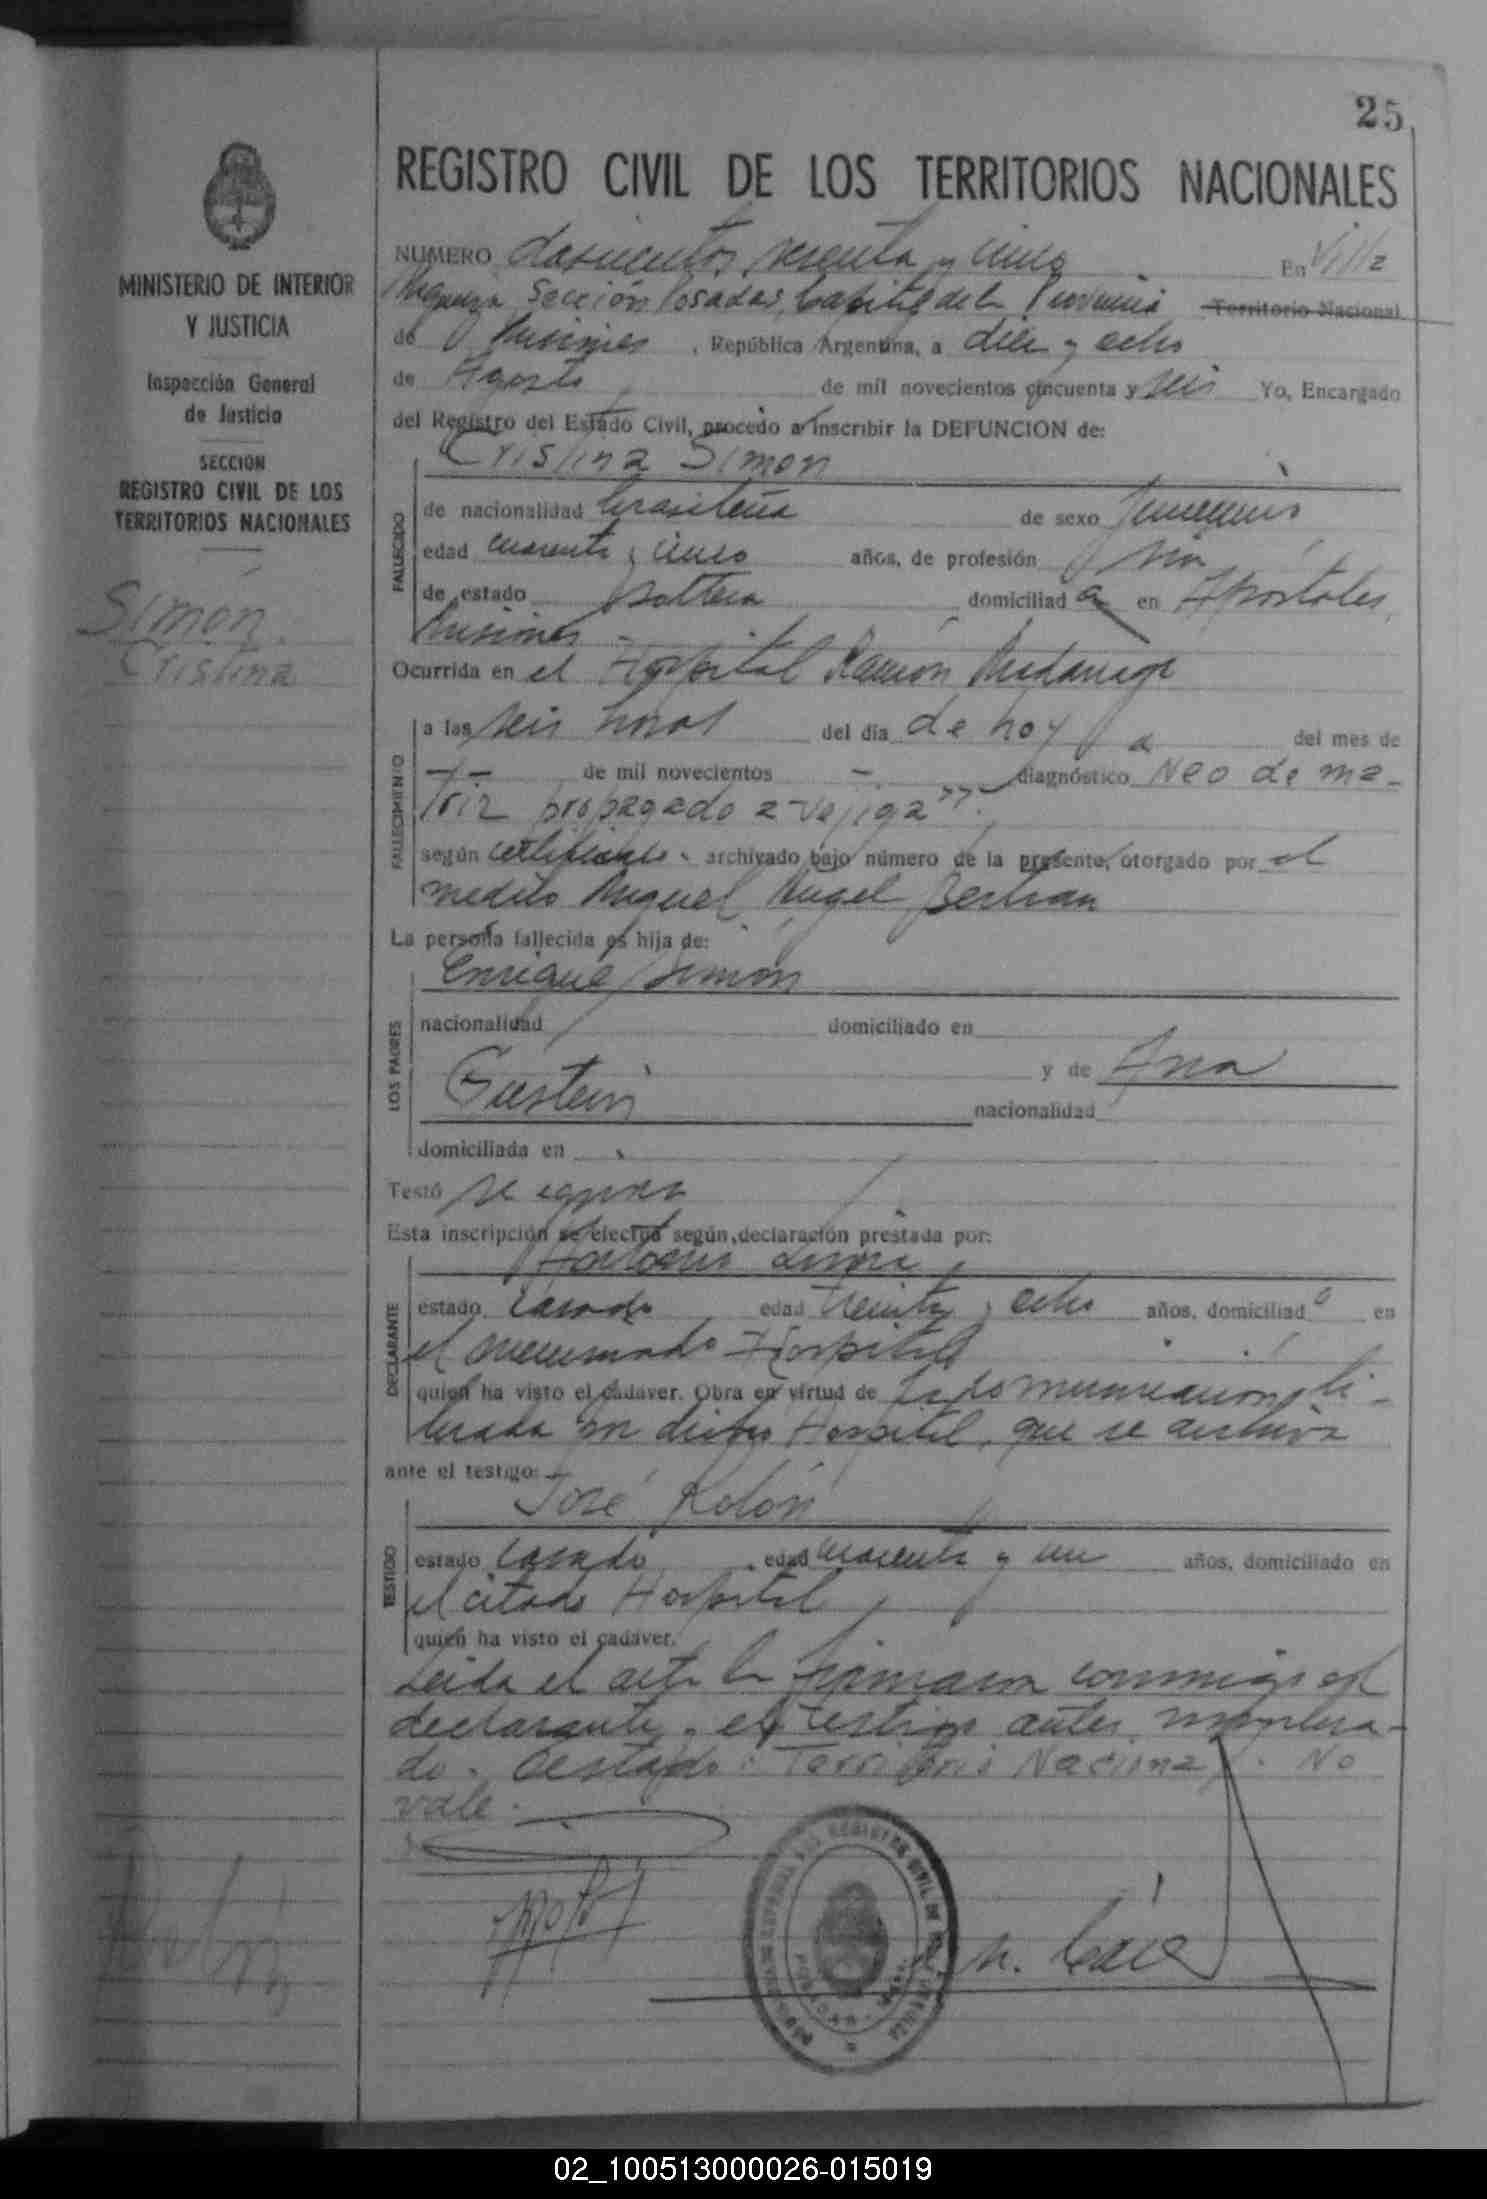 25
REGISTRO CIVIL DE LOS TERRITORIOS NACIONALES
MINISTERIO DE INTERIOR
Y JUSTICIA
Inspección General
de Justicia
SECCION
REGISTRO CIVIL DE LOS
TERRITORIOS NACIONALES
Simón
Cristina
NUMERO doscientos sesenta y cinco En Villa
Sección Posadas, Capital de la Provincia Territorio Nacional
de Misiones, República Argentina, a diez y ocho
de Agosto de mil novecientos cincuenta y seis Yo, Encargado
del Registro del Estado Civil, procedo a inscribir la DEFUNCION de:
Cristina Simon
FALLECIDO
de nacionalidad brasileña de sexo femenino
edad cuarenta y cinco años, de profesión
de estado soltera domiciliad a en Apóstoles,
Misiones -
Ocurrida en el Hospital Ramón Madariaga
FALLECIMIENTO
a las seis horas del día de hoy del mes de
- - de mil novecientos - diagnóstico Neo de ma-
triz propagado a vejiga".
según certificado archivado bajo número de la presente, otorgado por el
médico Miguel Angel Bertran
La persona fallecida es hija de:
LOS PADRES
Enrique Simon
nacionalidad domiciliado en
y de Ana
nacionalidad
domiciliada en
Testó se ignora
Esta inscripción se efectúa según declaración prestada por:
DECLARANTE
estado casado edad treinta y ocho años, domiciliad o en
el mencionado Hospital
quien ha visto el cadáver. Obra en virtud de la comunicación li-
brada por dicho Hospital, que se archiva
ante el testigo:
José Rolón
TESTIGO
estado casado edad cuarenta y un años, domiciliado en
el citado Hospital
quien ha visto el cadáver.
Leida el acta la firmaron conmigo el
declarante y el testigo antes nombra-
do. Testado: Territorio Nacional. No
vale.
02_100513000026-015019